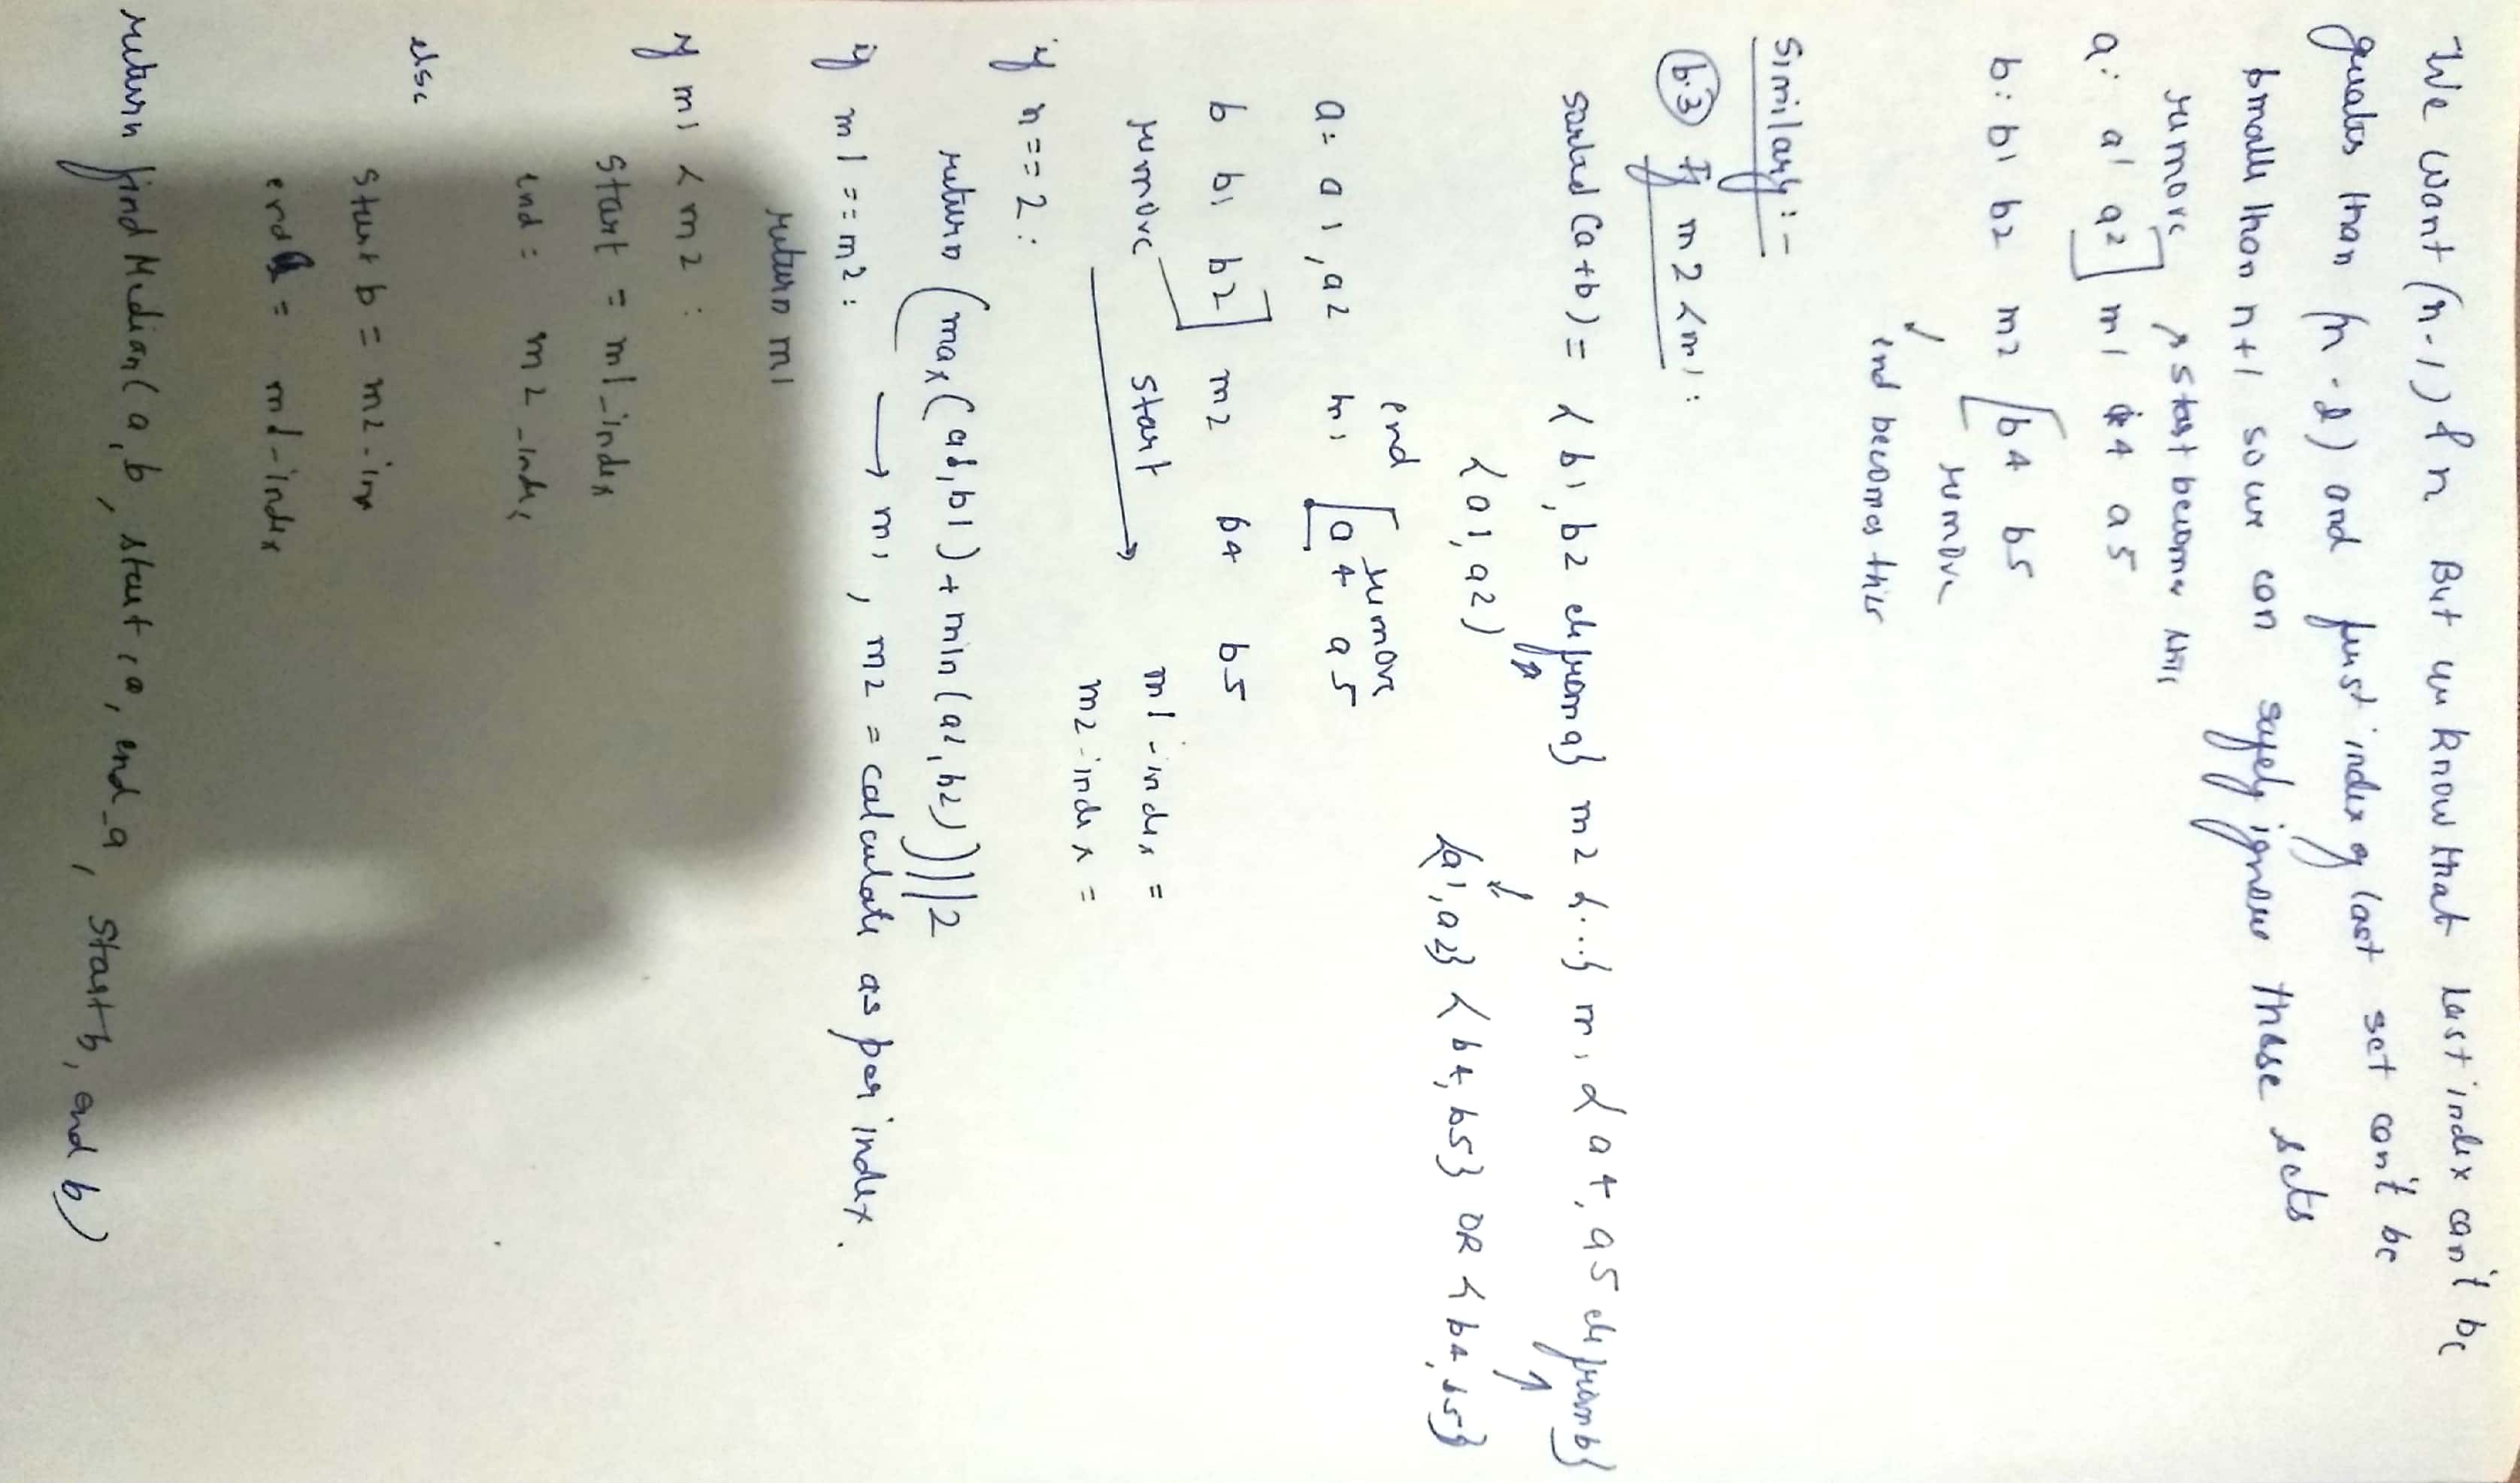 We want (n-1) & n But we know that Last index can't be
greater than (n-2) and first index of last set can't be
smaller than n+1 so we can safely ignore these sets
remove start becomes this
a: a1 a2] m1 a4 a5
b: b1 b2 m2 [b4 b5
remove
end becomes this
Similary:-
b.3 If m2 < m1:
sorted (a+b) = { b1, b2 ele from a} m2 {...} m1 { a4, a5 ele from b}
{a1, a2}
{a1, a2} { b4, b5} OR { b4, b5}
end remove
a= a1, a2 m1 [a4 a5
b b1 b2] m2 b4 b5
remove start m1-index =
m2-index =
if n==2:
return (max(a1,b1) + min(a2,b2))//2
→ m1, m2 = calculate as per index.
if m1 == m2:
return m1
if m1 < m2 :
start = m1_index
end = m2_index
else
start b = m2-in
end = m1-index
return find Median(a, b, start, a, end_a, start b, end b)